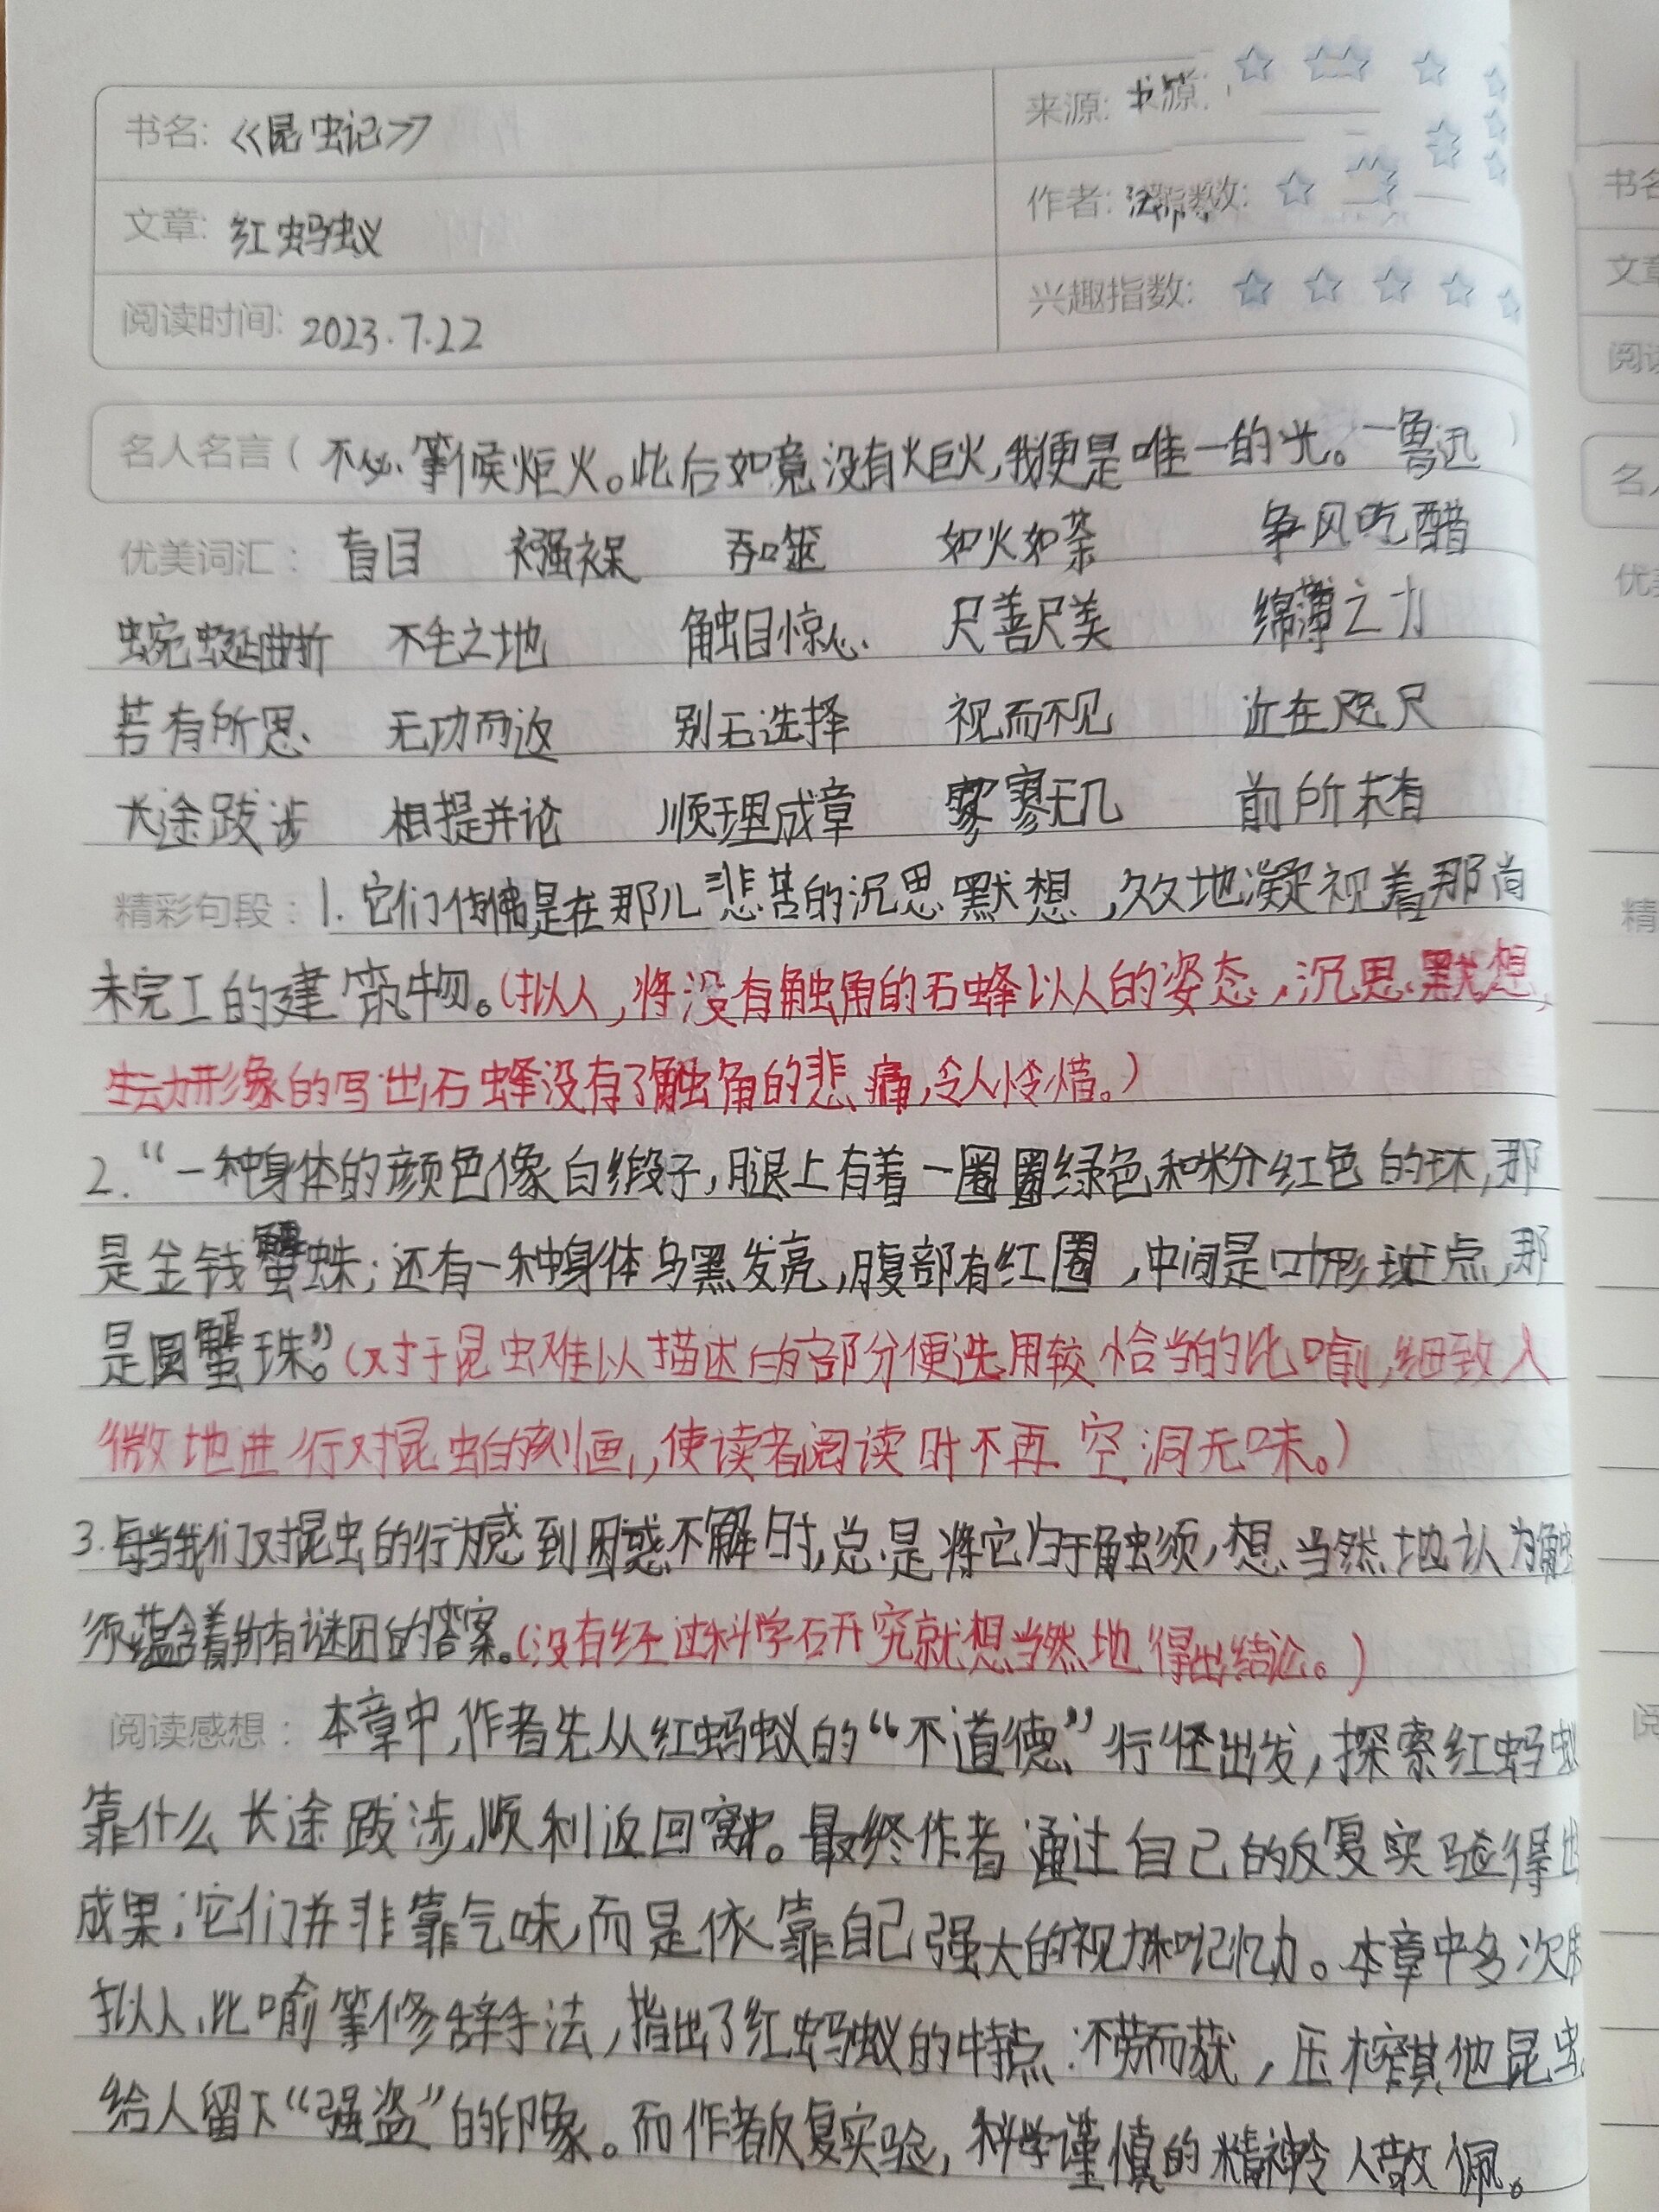 书名: 《昆虫记》
来源:
文章: 红蚂蚁
作者:
阅读时间: 2023.7.22
兴趣指数:
名人名言(不必等候炬火。此后如竟没有炬火,我便是唯一的光。一鲁迅)
优美词汇: 盲目 襁褓 吞噬 如火如荼 争风吃醋
蜿蜒曲折 不毛之地 触目惊心 尺善尺美 绵薄之力
若有所思 无功而返 别无选择 视而不见 近在咫尺
长途跋涉 相提并论 顺理成章 寥寥无几 前所未有
精彩句段: 1. 它们仿佛是在那儿悲苦的沉思默想,久久地凝视着那尚
未完工的建筑物。(拟人,将没有触角的石蜂以人的姿态,沉思默想,
生动形象的写出石蜂没有了触角的悲痛,令人怜惜。)
2. “一种身体的颜色像白缎子,腿上有着一圈圈绿色和粉红色的环,那
是金钱蟹蛛;还有一种身体乌黑发亮,腹部有红圈,中间是叶形斑点,那
是圆蟹珠”。(对于昆虫难以描述的部分便选用较恰当的比喻,细致入
微地进行对昆虫的刻画,使读者阅读时不再空洞无味。)
3. 每当我们对昆虫的行为感到困惑不解时,总是将它归于触须,想当然地认为触
须蕴含着所有谜团的答案。(没有经过科学研究就想当然地得出结论。)
阅读感想: 本章中,作者先从红蚂蚁的“不道德”行径出发,探索红蚂蚁
靠什么长途跋涉,顺利返回窝中。最终作者通过自己的反复实验得出
成果;它们并非靠气味,而是依靠自己强大的视力和记忆力。本章中多次
拟人、比喻等修辞手法,指出了红蚂蚁的特点:不劳而获,压榨其他昆虫
给人留下“强盗”的印象。而作者反复实验,科学谨慎的精神令人敬佩。